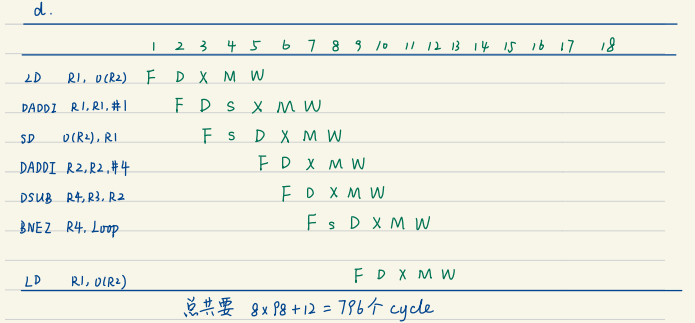 d.
1 2 3 4 5 6 7 8 9 10 11 12 13 14 15 16 17 18
LD R1, 0(R2) F D X M W
DADDI R1, R1, #1 F D S X M W
SD 0(R2), R1 F S D X M W
DADDI R2, R2, #4 F D X M W
DSUB R4, R3, R2 F D X M W
BNEZ R4, Loop F S D X M W
LD R1, 0(R2) F D X M W
总共要 8x98+12 = 796个 cycle